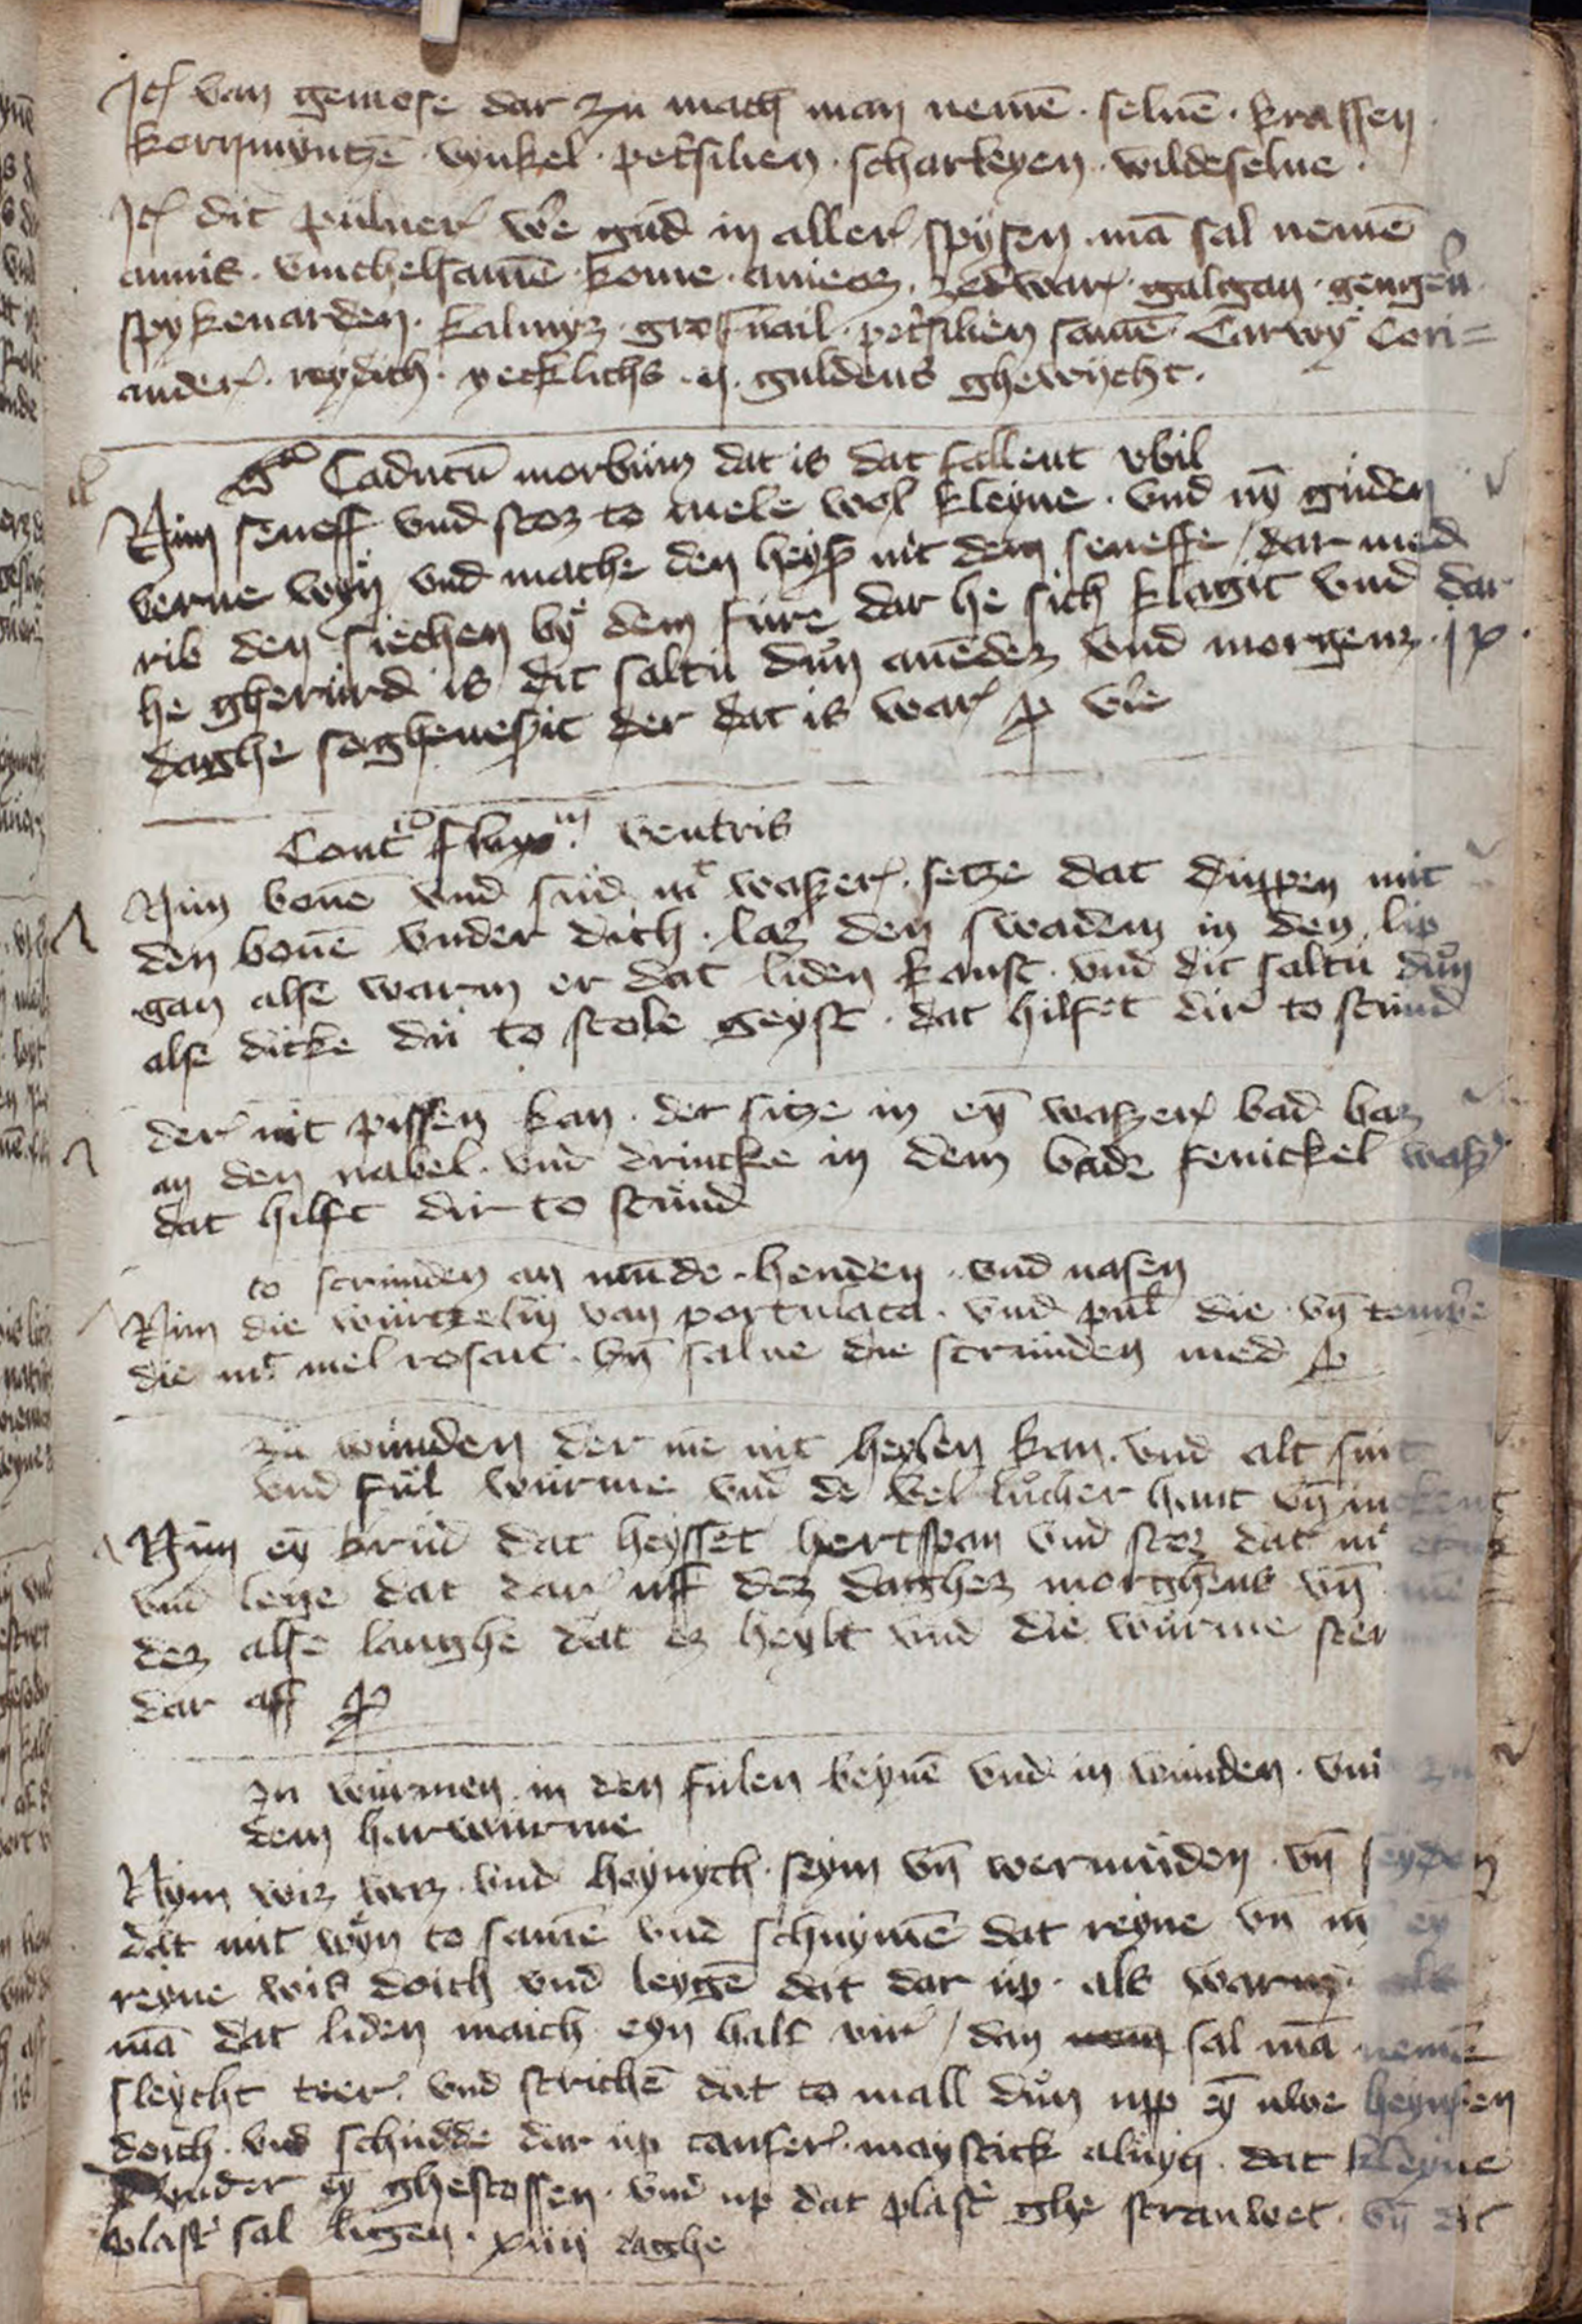 Itē van gemose dar zu mach man nemē · seluē · krassen
kornmyntzē · vynkel · pet'silien · scharleyen · wildeselue ·
Itē dit puluer we gud in aller spysen · mā sal nemē
annis · vinchelsamē · kome · zedwar · galgan · gengeu'
spykenarden · kalmyz · pet'silien samē · Carwy Cori=
ander · reydich · yecklichs · ij · guldens ghewycht ·
Caducū morbum dat is dat fallent vbil
Nim seneff vnd stoz to mele wol kleyne · vnd nȳ guden
verne wyn vnd mache den heyß mit dem seneffe / dar med
rib den siechen by dem fure dar he sich klagit vnd dar
he gherurd is dit saltu dun auēdez vnd morgenz · ix ·
daghe der dat is war
Cont° flux ventris
Nim bonē vnd sud mt waßer · setze dat duppen mit
den bonē vnder dich · laz den swadem in den lip
gan alse warm er dat liden kanst · vnd dit saltu dun
alse dicke du to stole geyst · dat hilfet dir to stund
der nit pissen kan · der sitze in eyn waßer bad baz
an den nabel · vnd drincke in dem bade fenickel waß'
dat hilft dir to stund
to scrunden an munde · henden · vnd nasen
Nim die wurtzelin van portulaca · vnd pul' die · vn̄ temp'e
die mt mel rosait · vn̄ salue die scrunden med
zu wunden der me nit heylen kan · vnd alt sint
vnd ful wurme vnd de vel luch'er hant vn̄
Nim eȳ krud dat heysset hertspan vnd stoz dat mt
vnd lege dat dar uff dez daghez morghens vn̄
dez alse langhe dat ez heylt vnd die wurme
dar aff
zu wurmen in den fulen beynē vnd in wunden · vnd zu
dem harwurme
Nym wiz vnd heynych · seym vn̄ wermuden · vn̄ seyden
dat mit wyn to samē vnd schuymē dat reyne vn̄ eȳ
reyne wis doich vnd leygē dat dar up · als warm als
mā dat liden maich eyn half vir / dan sal mā nemē
sleycht teer · vnd strichē dat to mall dun upp eȳ nwe heynfen
doich · vnd schudde dar up canfer · maystick aluyn · dat kleyne
vnder eȳ ghestossen · vnd up dat plast' ghe strauwet · vn̄ dit
plast' sal ligen · xiiij daghe